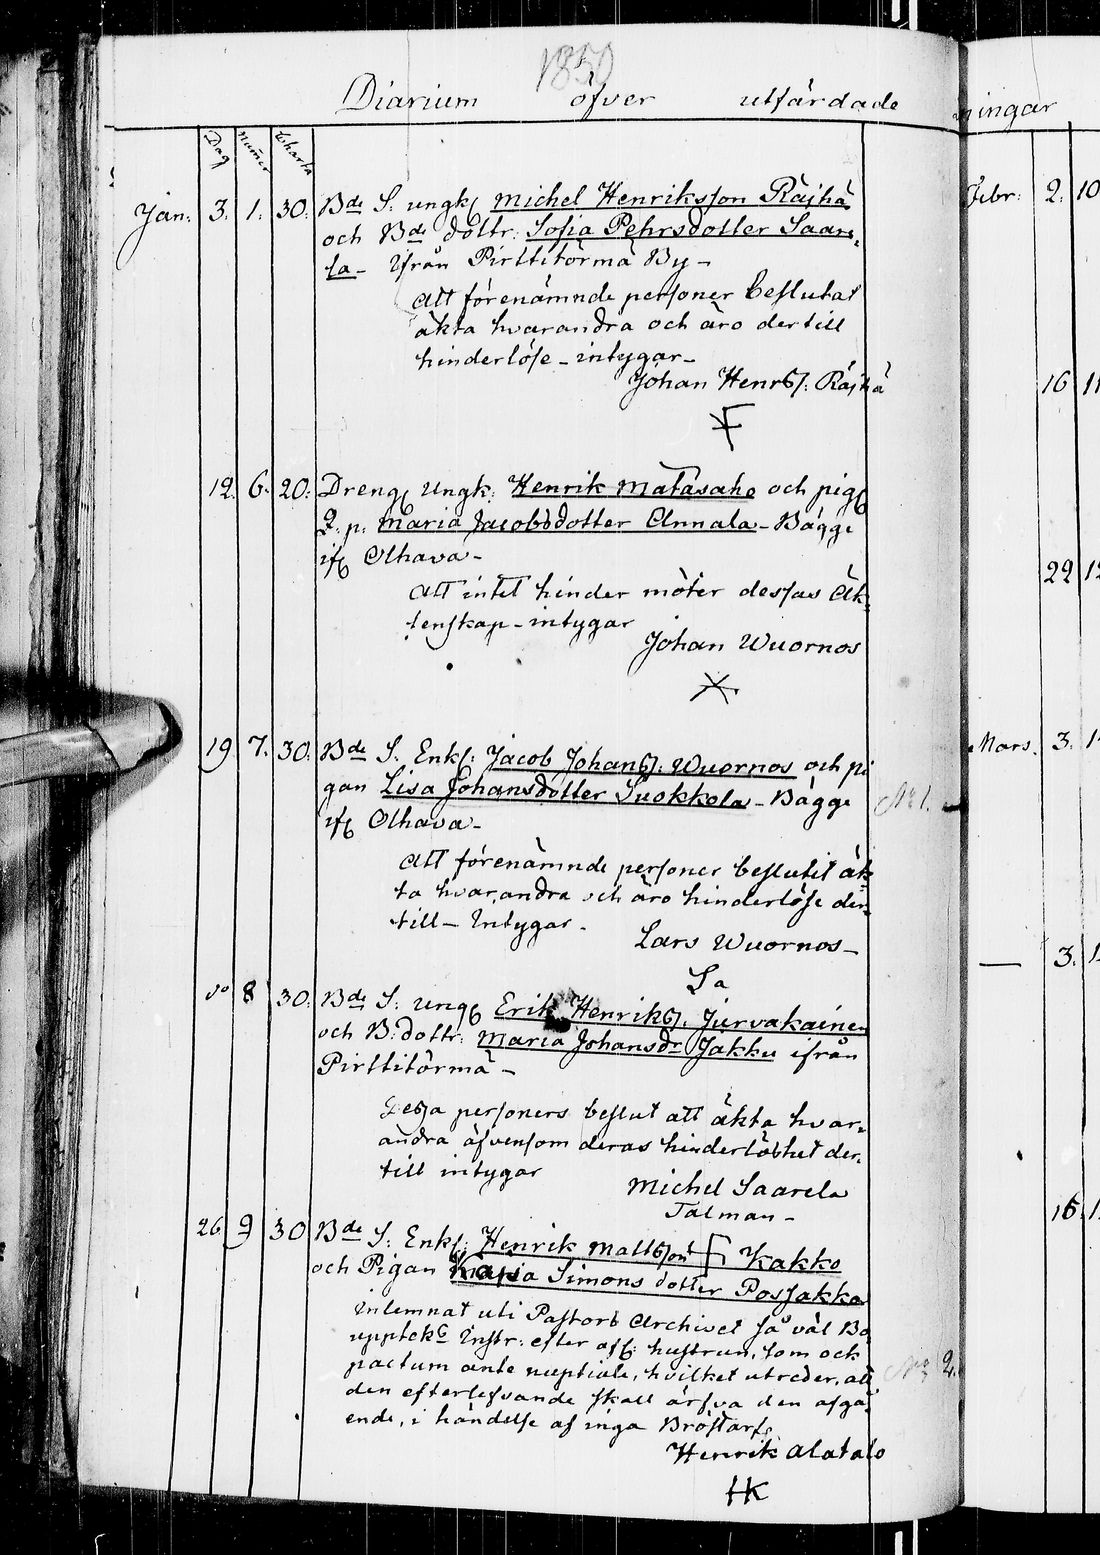 1850
Diarium öfver utfärdade
Dag numer Charta
Jan: 3. 1. 30. Bde S. ungk: Michel Henriksson Räihä
och Bde dottr: Sofia Pehrsdotter Saare,
la - ifrån Pirttitörmä By -
att förenämnde personer beslutat
äkta hvarandra och äro dertill
hinderlöse - intygar -
Johan Henrss: Räihä
12. 6. 20. Dreng Ungk: Henrik Matasaho och pig
Q. p. Maria Jacobsdotter Annala - Bägge
ifr Olhava -
att intet hinder möter dessas Äk,
tenskap - intygar
Johan Wuornos
19. 7. 30. Bde S. Enkl: Jacob Johanss: Wuornos och pi
gan Lisa Johansdotter Suokkola - Bägge
ifr Olhava -
att förenämnde personer beslutit äk,
ta hvarandra och äro hinderlöse der,
till - Intygar -
Lars Wuornos -
do 8 30. Bde S: ung Erik Henrikss. Jurvakainen
och B: dottr: Maria Johansdr Jakku ifrån
Pirttitörmä -
Dessa personers beslut att äkta hvar,
andra äfvensom deras hinderlöshet der,
till intygar
Michel Saarela
Talman -
26 9 30 Bde S: Enkl: Henrik Mattsson Kakko
och Pigan Simons dotter Posjakka
inlemnat uti Pastors Archivet så väl Bo
Instr: efter afl: hustrun, som ock
pactum ante nuptiale, hvilket utreder, att
den efterlefvande skall ärfva den afgå
ende, i händelse af inga Bröstarf
Henrik Alatalo
HK
No 1.
No 2.
ningar
Febr: 2. 10
16 11
22 12
Mars. 3.
— 3.
16.